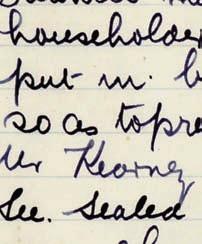 householder
put in. b
so as topre
Mr Kearney
See. Sealed